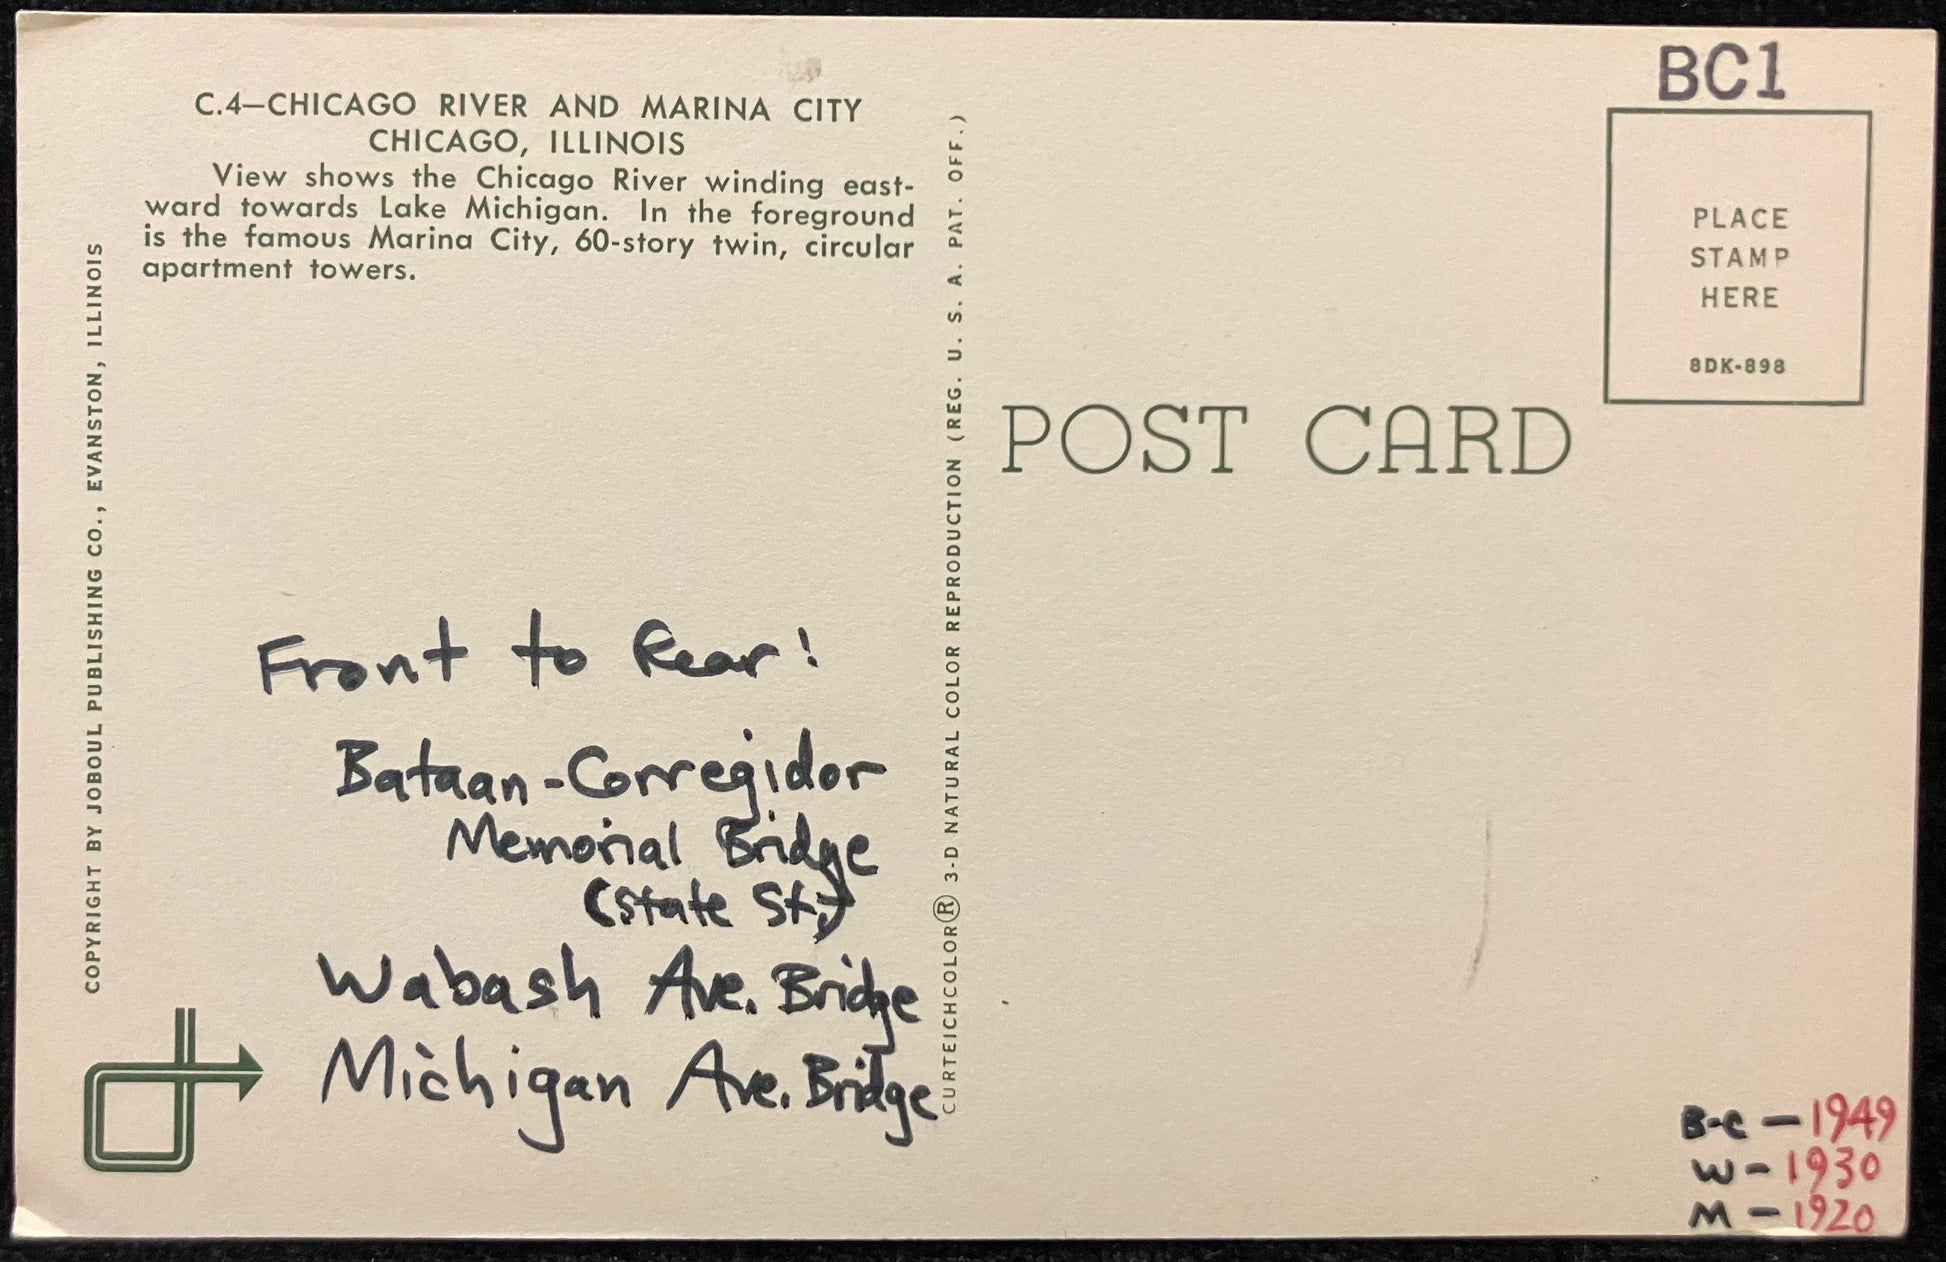 C.4—CHICAGO RIVER AND MARINA CITY
CHICAGO, ILLINOIS
View shows the Chicago River winding east-
ward towards Lake Michigan. In the foreground
is the famous Marina City, 60-story twin, circular
apartment towers.
COPYRIGHT BY JOBOUL PUBLISHING CO., EVANSTON, ILLINOIS
Front to Rear!
Bataan-Corregidor
Memorial Bridge
(State St.)
Wabash Ave. Bridge
Michigan Ave. Bridge
CURTEICHCOLOR® 3-D NATURAL COLOR REPRODUCTION (REG. U. S. A. PAT. OFF.)
BC1
PLACE
STAMP
HERE
8DK-898
POST CARD
B-C — 1949
W - 1930
M - 1920